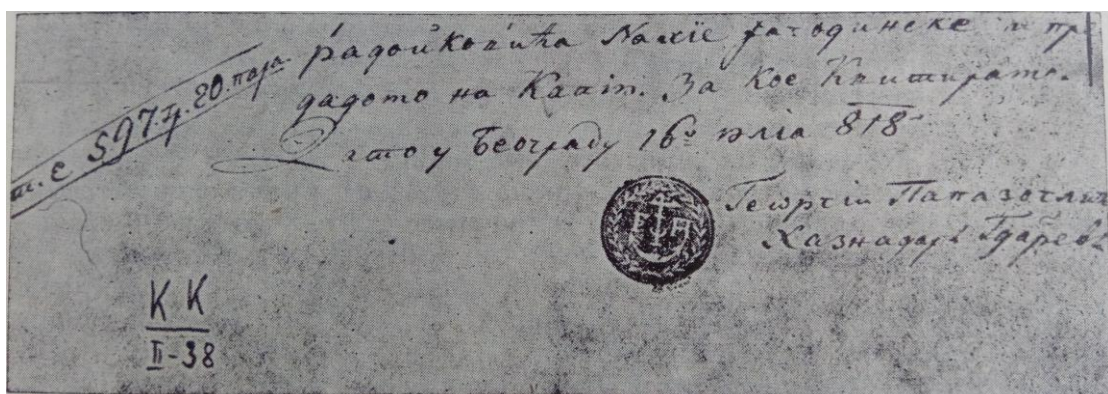 т. е 597. 20. пара
радойковића Нахіе јагодинске и пр
дадото на Каліп. За кое Квитирамо.
Дато у Београду 16º юліа 818
Геωргіи Папазогли
Хазнадаръ
К К
II-38